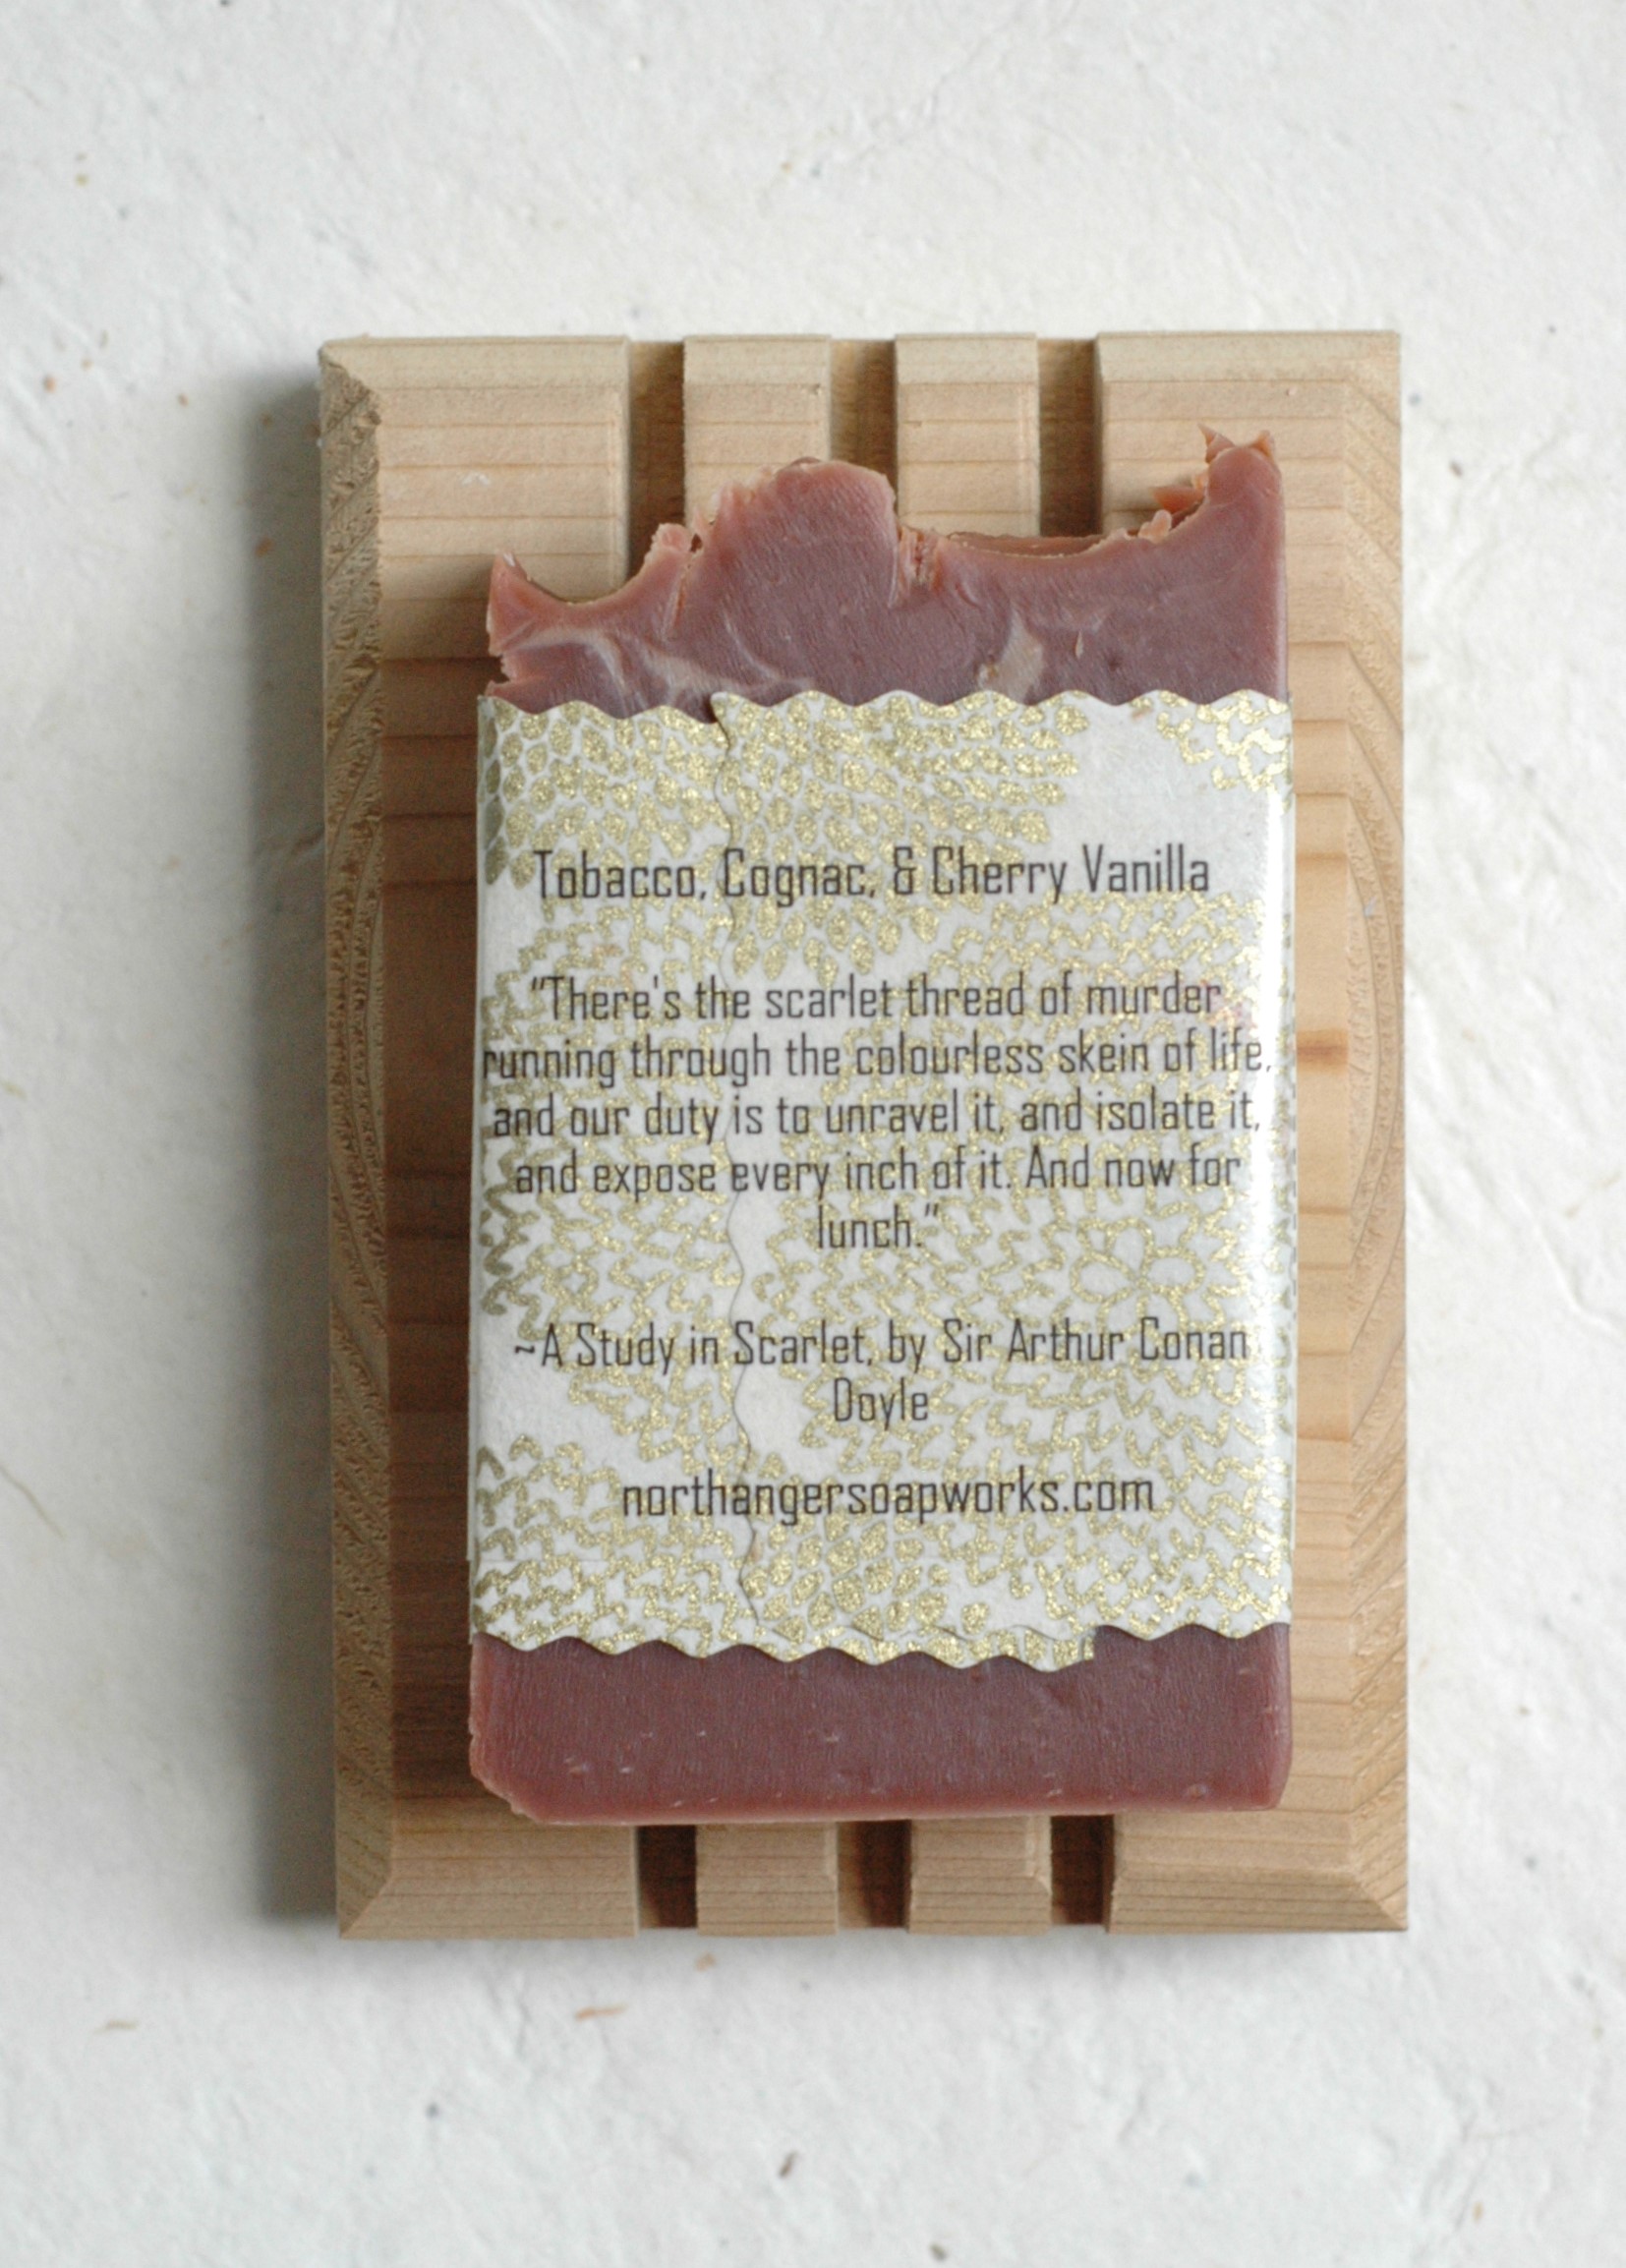 Tobacco, Cognac, & Cherry Vanilla
"There's the scarlet thread of murder
running through the colourless skein of life,
and our duty is to unravel it, and isolate it,
and expose every inch of it. And now for
lunch."
~A Study in Scarlet, by Sir Arthur Conan
Doyle
northangersoapworks.com